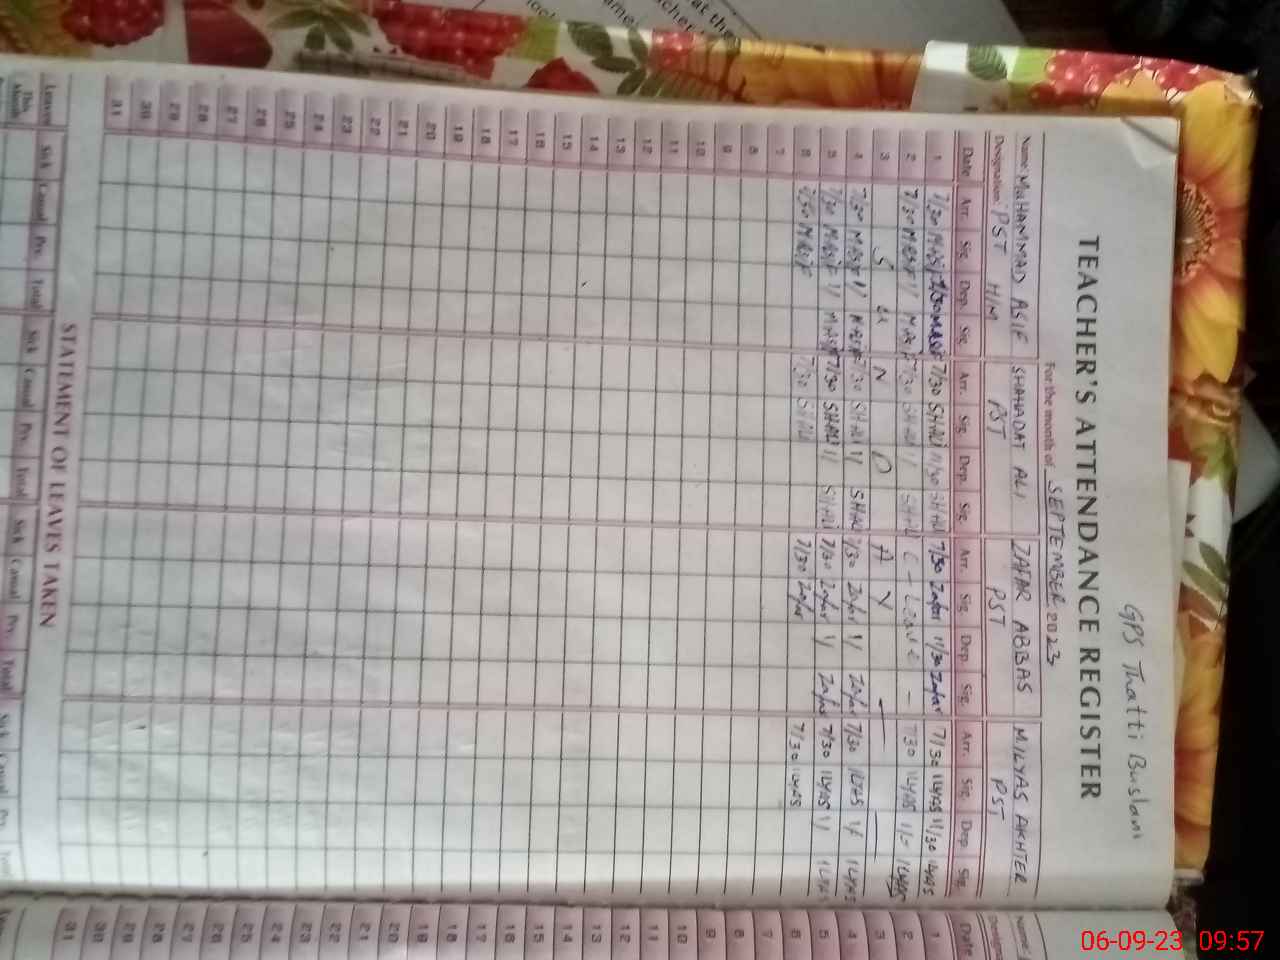 GPS Thatti
TEACHER'S ATTENDANCE REGISTER
For the month of SEPTEMBER 2023
Name: MUHAMMAD ASIF SHAHADAT ALI ZAFAR ABBAS M.ILYAS AKHTER
Designation: PST H/M PST PST PST
Date Arr. Sig. Dep. Sig. Arr. Sig. Dep. Sig. Arr. Sig. Dep. Sig. Arr. Sig. Dep. Sig.
1 7/30 MASIF MASIF 7/30 SHALI 11/30 SHALI 7/30 Zafar 11/30 Zafar 7/30 ILYAS 11/30 ILYAS
2 7/30 MASIF 11 MASIF 7/30 SHALI 11 SHALI C - Leave - 7/30 ILYAS 11/- ILYAS
3 S U N D A Y
4 7/30 MASIF 11 MASIF 7/30 SHALI 11 SHALI 7/30 Zafar 11 Zafar 7/30 ILYAS 11 ILYAS
5 7/30 MASIF 11 MASIF 7/30 SHALI 11 SHALI 7/30 Zafar 11 Zafar 7/30 ILYAS 11 ILYAS
6 7/30 MASIF 7/30 SHALI 7/30 Zafar 7/30 ILYAS
7
8
9
10
11
12
13
14
15
16
17
18
19
20
21
22
23
24
25
26
27
28
29
30
31
STATEMENT OF LEAVES TAKEN
Leaves Sick Casual Prv. Total Sick Casual Prv. Total Sick Casual Prv. Total Sick Casual Prv. Total
This Month
Date
1
2
3
4
5
6
7
9
10
11
12
13
14
15
16
17
18
19
20
21
22
23
24
25
26
27
28
29
30
31
06-09-23 09:57